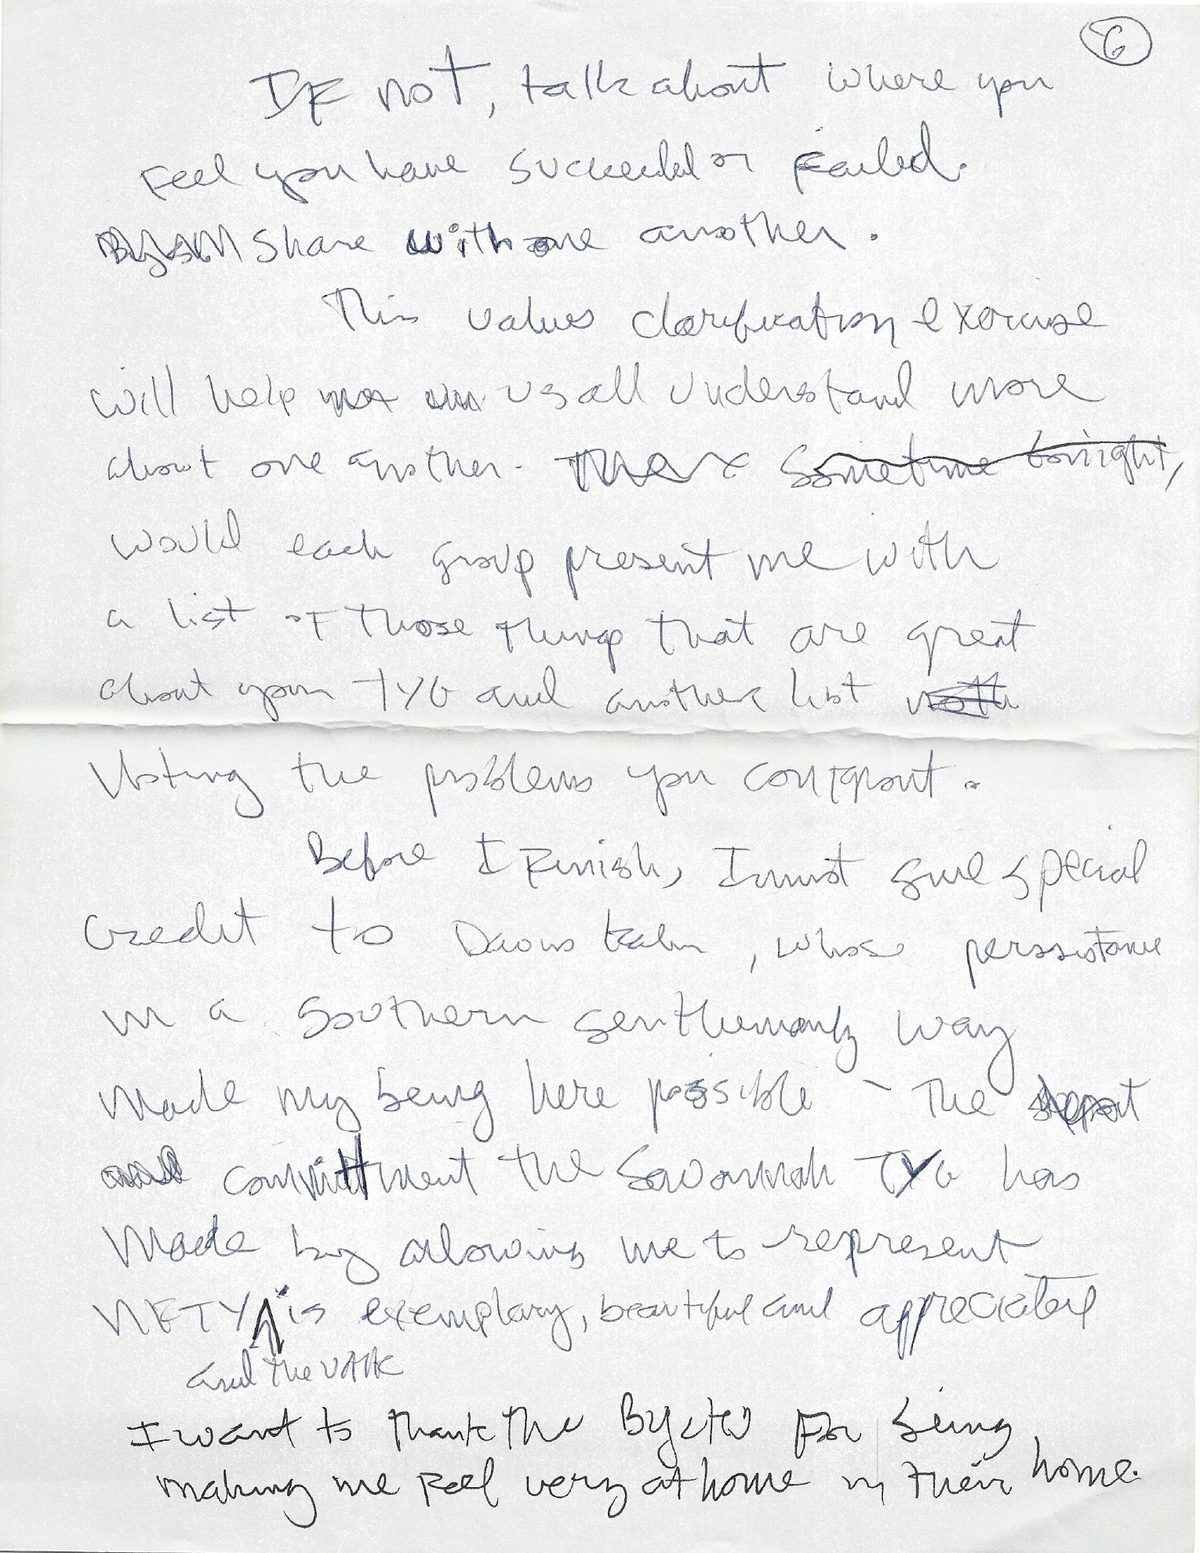 6
IF not, talk about where you
Feel you have succeeded or Failed.
Share with one another.
This values clarification exercise
will help us all understand more
about one another. Sometime tonight,
would each group present me with
a list of those things that are great
about your TYG and another list
listing the problems you confront.
Before I Finish, I must give special
credit to , whose persistance
in a Southern gentlemanly way
made my being here possible - The
committment the Savannah TYG has
made by allowing me to represent
NFTY is exemplary, beautiful and appreciated
and the UAHC
I want to thank the For being
making me Feel very at home in their home.